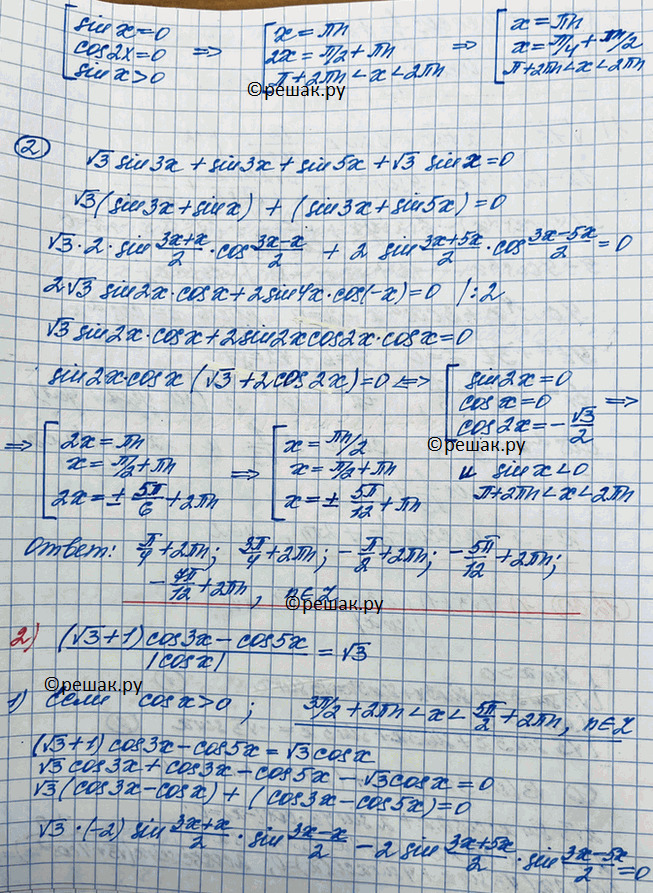 [ sin x = 0
cos 2x = 0
sin x > 0 => [ x = πn
2x = π/2 + πn
π + 2πn < x < 2πn => [ x = πn
x = π/4 + πn/2
π + 2πn < x < 2πn
©решак.ру
② √3 sin 3x + sin 3x + sin 5x + √3 sin x = 0
√3 (sin 3x + sin x) + (sin 3x + sin 5x) = 0
√3 · 2 · sin (3x+x)/2 · cos (3x−x)/2 + 2 sin (3x+5x)/2 · cos (3x−5x)/2 = 0
2√3 sin 2x · cos x + 2 sin 4x · cos(−x) = 0 | : 2
√3 sin 2x · cos x + 2 sin 2x cos 2x · cos x = 0
sin 2x · cos x (√3 + 2 cos 2x) = 0 <=> [ sin 2x = 0
cos x = 0
cos 2x = −√3/2 =>
©решак.ру
и sin x < 0
π + 2πn < x < 2πn
=> [ 2x = πn
x = π/2 + πn
2x = ± 5π/6 + 2πn => [ x = πn/2
x = π/2 + πn
x = ± 5π/12 + πn
Ответ: π/4 + 2πn; 3π/4 + 2πn; −π/2 + 2πn; −5π/12 + 2πn;
−7π/12 + 2πn, n∈Z
©решак.ру
2) ((√3+1) cos 3x − cos 5x)/|cos x| = √3
©решак.ру
1) Если cos x > 0; 3π/2 + 2πn < x < 5π/2 + 2πn, n∈Z
(√3+1) cos 3x − cos 5x = √3 cos x
√3 cos 3x + cos 3x − cos 5x − √3 cos x = 0
√3 (cos 3x − cos x) + (cos 3x − cos 5x) = 0
√3 · (−2) sin (3x+x)/2 · sin (3x−x)/2 − 2 sin (3x+5x)/2 · sin (3x−5x)/2 = 0